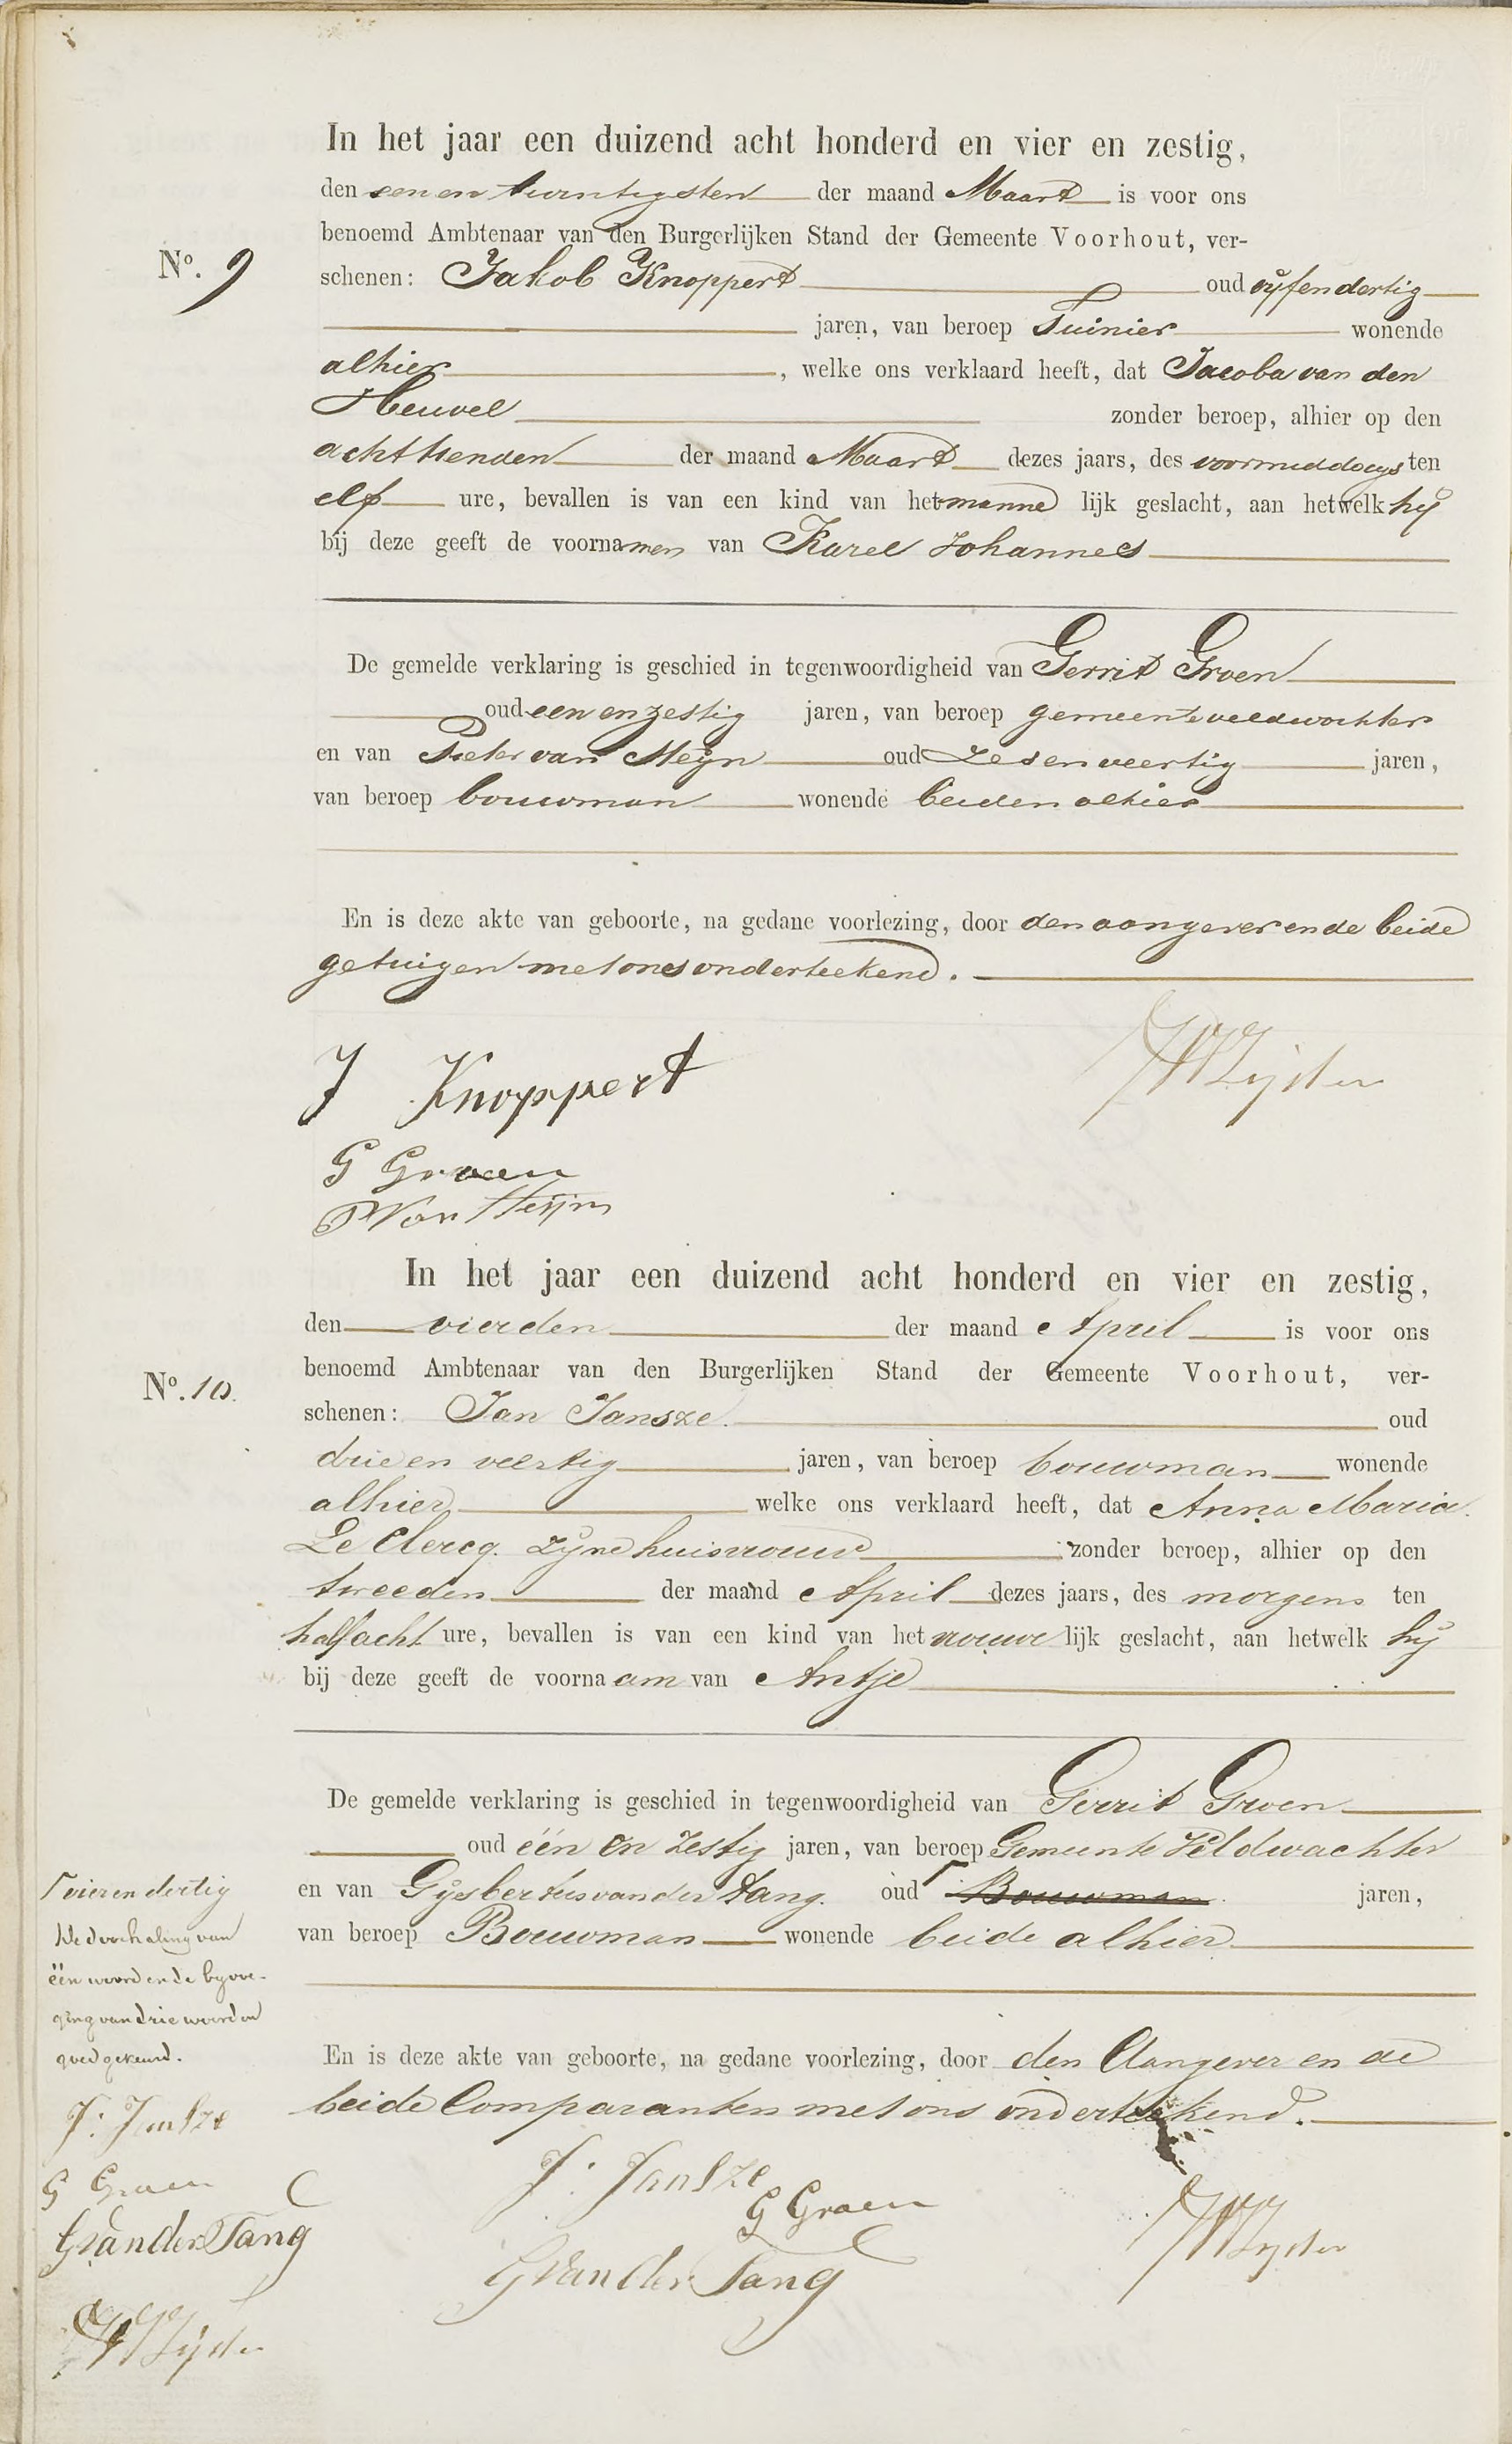 In het jaar een duizend acht honderd en vier en zestig,
den een en twintigsten der maand Maart is voor ons
benoemd Ambtenaar van den Burgerlijken Stand der Gemeente Voorhout, ver-
No. 9
schenen: Jakob Knoppert oud vijfendertig
jaren, van beroep Tuinier wonende
alhier, welke ons verklaard heeft, dat Jacoba van den
Heuvel zonder beroep, alhier op den
achttienden der maand Maart dezes jaars, des voormiddags ten
elf ure, bevallen is van een kind van het manne lijk geslacht, aan hetwelk hij
bij deze geeft de voornamen van Karel Johannes
De gemelde verklaring is geschied in tegenwoordigheid van Gerrit Groen
oud een en zestig jaren, van beroep gemeenteveldwachter
en van Pieter van Steijn oud zes en veertig jaren,
van beroep bouwman wonende beiden alhier
En is deze akte van geboorte, na gedane voorlezing, door den aangever en de beide
getuigen met ons onderteekend.
J Knoppert
G Groen
P Van Steijn
In het jaar een duizend acht honderd en vier en zestig,
den vierden der maand April is voor ons
benoemd Ambtenaar van den Burgerlijken Stand der Gemeente Voorhout, ver-
No. 10.
schenen: Jan Jansze. oud
drie en veertig jaren, van beroep bouwman wonende
alhier, welke ons verklaard heeft, dat Anna Maria
Le Clercq. zijne huisvrouw zonder beroep, alhier op den
tweeden der maand April dezes jaars, des morgens ten
half acht ure, bevallen is van een kind van het vrouwe lijk geslacht, aan hetwelk hij
bij deze geeft de voorna am van Antje
De gemelde verklaring is geschied in tegenwoordigheid van Gerrit Groen
oud één en zestig jaren, van beroep Gemeente Veldwachter
en van Gijsbertus van der Tang. oud Bouwman jaren,
van beroep Bouwman wonende beide alhier
En is deze akte van geboorte, na gedane voorlezing, door den Aangever en de
beide Comparanten met ons onderteekend.
J: Jansze
G Groen
G van der Tang
vier en dertig
De doorhaling van
één woord en de bijvoe-
ging van drie woorden
goedgekeurd.
J: Jansze
G Groen
G van der Tang